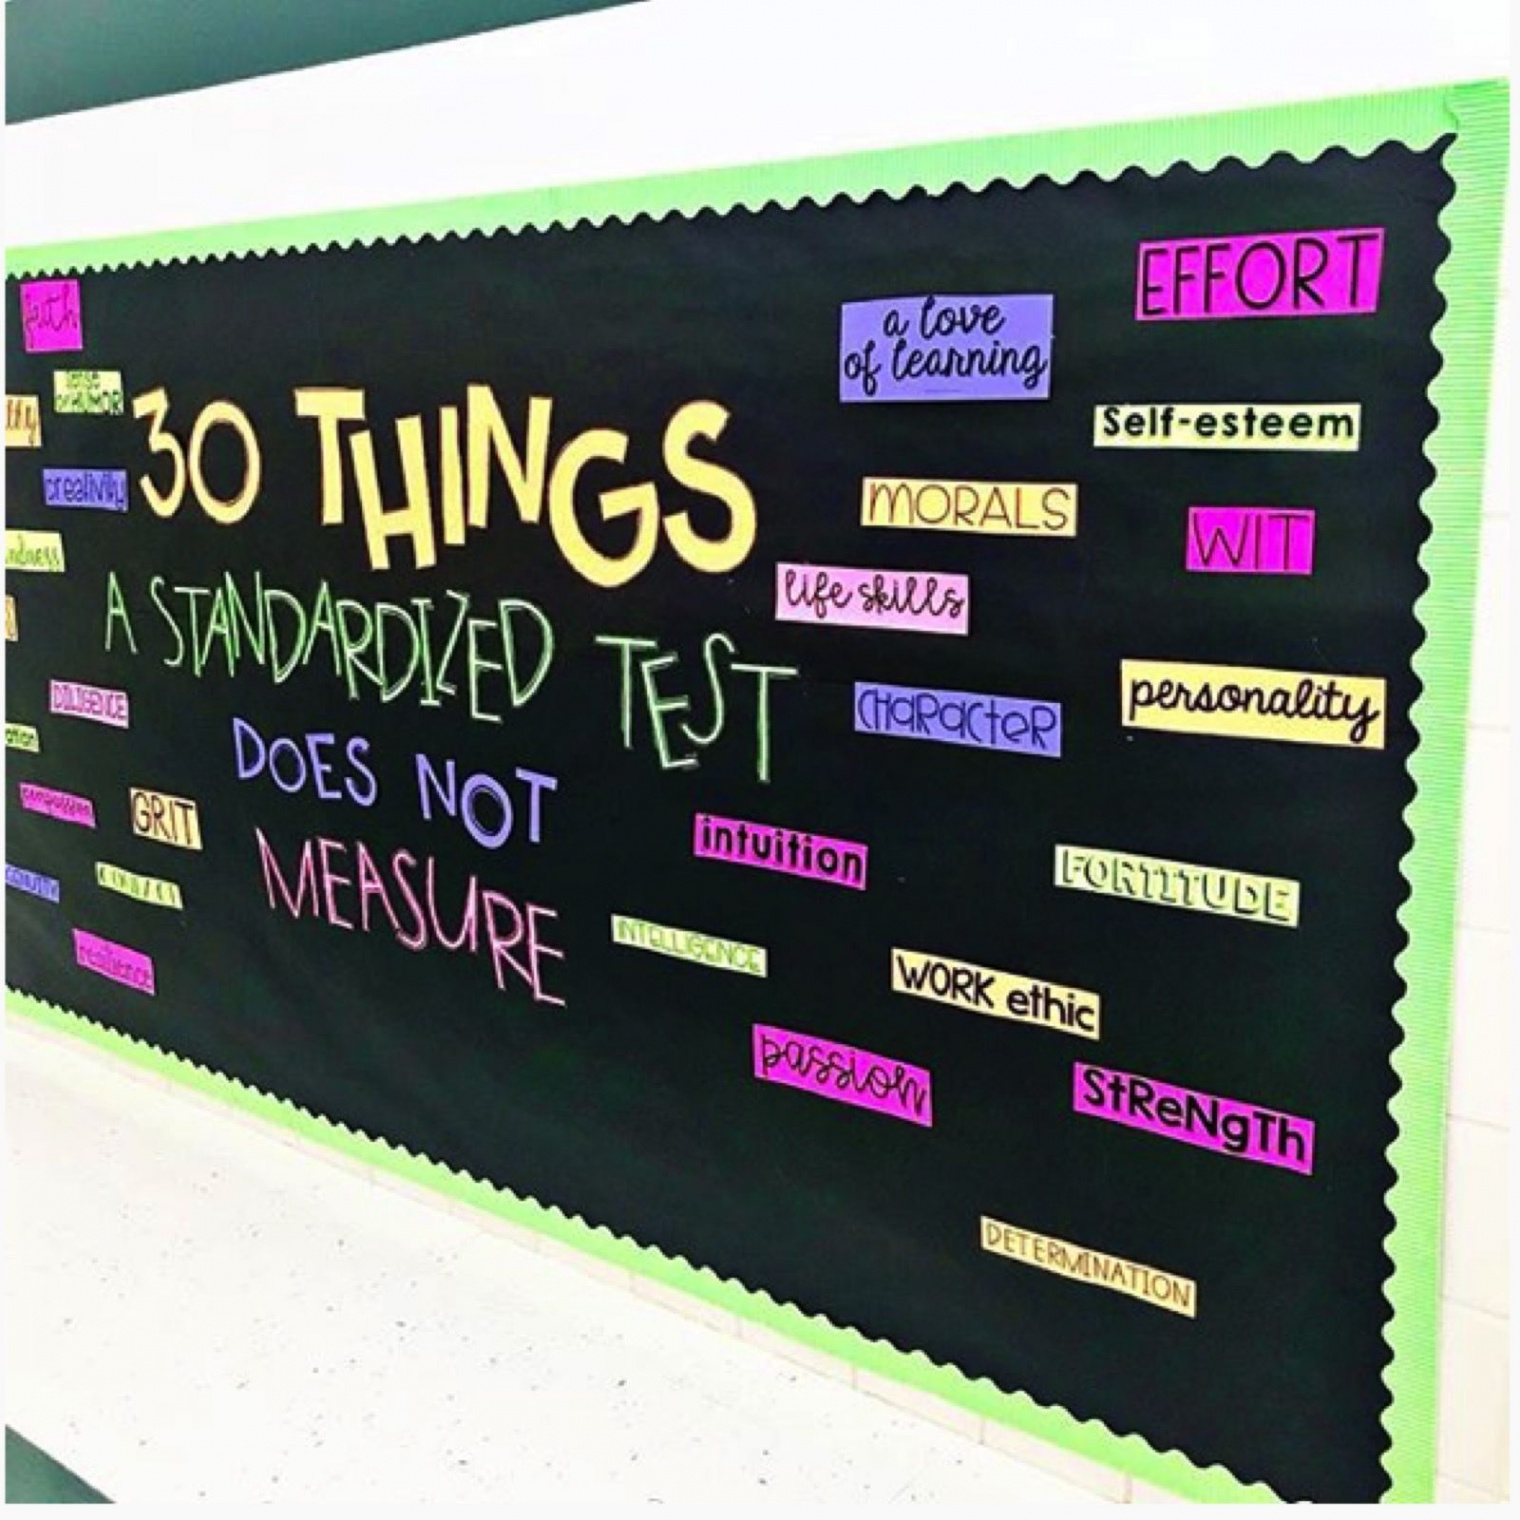 faith
sense
of HUMOR
creativity
DILIGENCE
compassion
GRIT
resilience
30 THINGS
A STANDARDIZED TEST
DOES NOT
MEASURE
a love
of learning
EFFORT
Self-esteem
MORALS
WIT
life skills
CHaRacteR
personality
intuition
FORTITUDE
INTELLIGENCE
WORK ethic
passion
StReNgTh
DETERMINATION